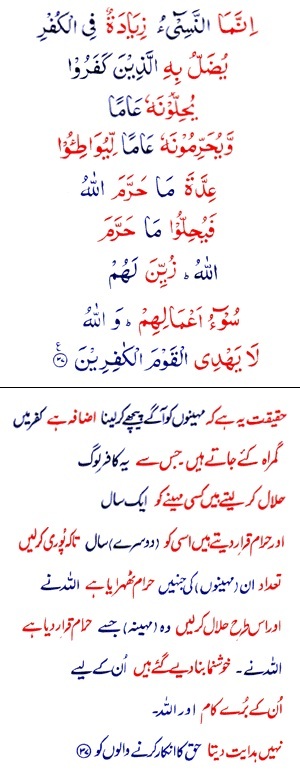 اِنَّمَا النَّسِیْٓءُ زِیَادَةٌ فِی الْكُفْرِ
یُضَلُّ بِهِ الَّذِیْنَ كَفَرُوْا
یُحِلُّوْنَهٗ عَامًا
وَّیُحَرِّمُوْنَهٗ عَامًا لِّیُوَاطِـُٔوْا
عِدَّةَ مَا حَرَّمَ اللّٰهُ
فَیُحِلُّوْا مَا حَرَّمَ
اللّٰهُ ؕ زُیِّنَ لَهُمْ
سُوْٓءُ اَعْمَالِهِمْ ؕ وَ اللّٰهُ
لَا یَهْدِی الْقَوْمَ الْكٰفِرِیْنَ ﴿۳۷﴾ ع
حقیقت یہ ہے کہ مہینوں کو آگے پیچھے کرلینا اضافہ ہے کفر میں
گمراہ کئے جاتے ہیں جس سے یہ کافر لوگ
حلال کرلیتے ہیں کسی مہینے کو ایک سال
اور حرام قرار دیتے ہیں اسی کو (دوسرے) سال تاکہ پُوری کرلیں
تعداد ان (مہینوں) کی جنہیں حرام ٹھہرایا ہے اللہ نے
اور اس طرح حلال کرلیں وہ (مہینہ) جسے حرام قرار دیا ہے
اللہ نے۔ خوشنما بنا دیے گئے ہیں اُن کے لیے
اُن کے بُرے کام اور اللہ۔
نہیں ہدایت دیتا حق کا انکار کرنے والوں کو ﴿۳۷﴾